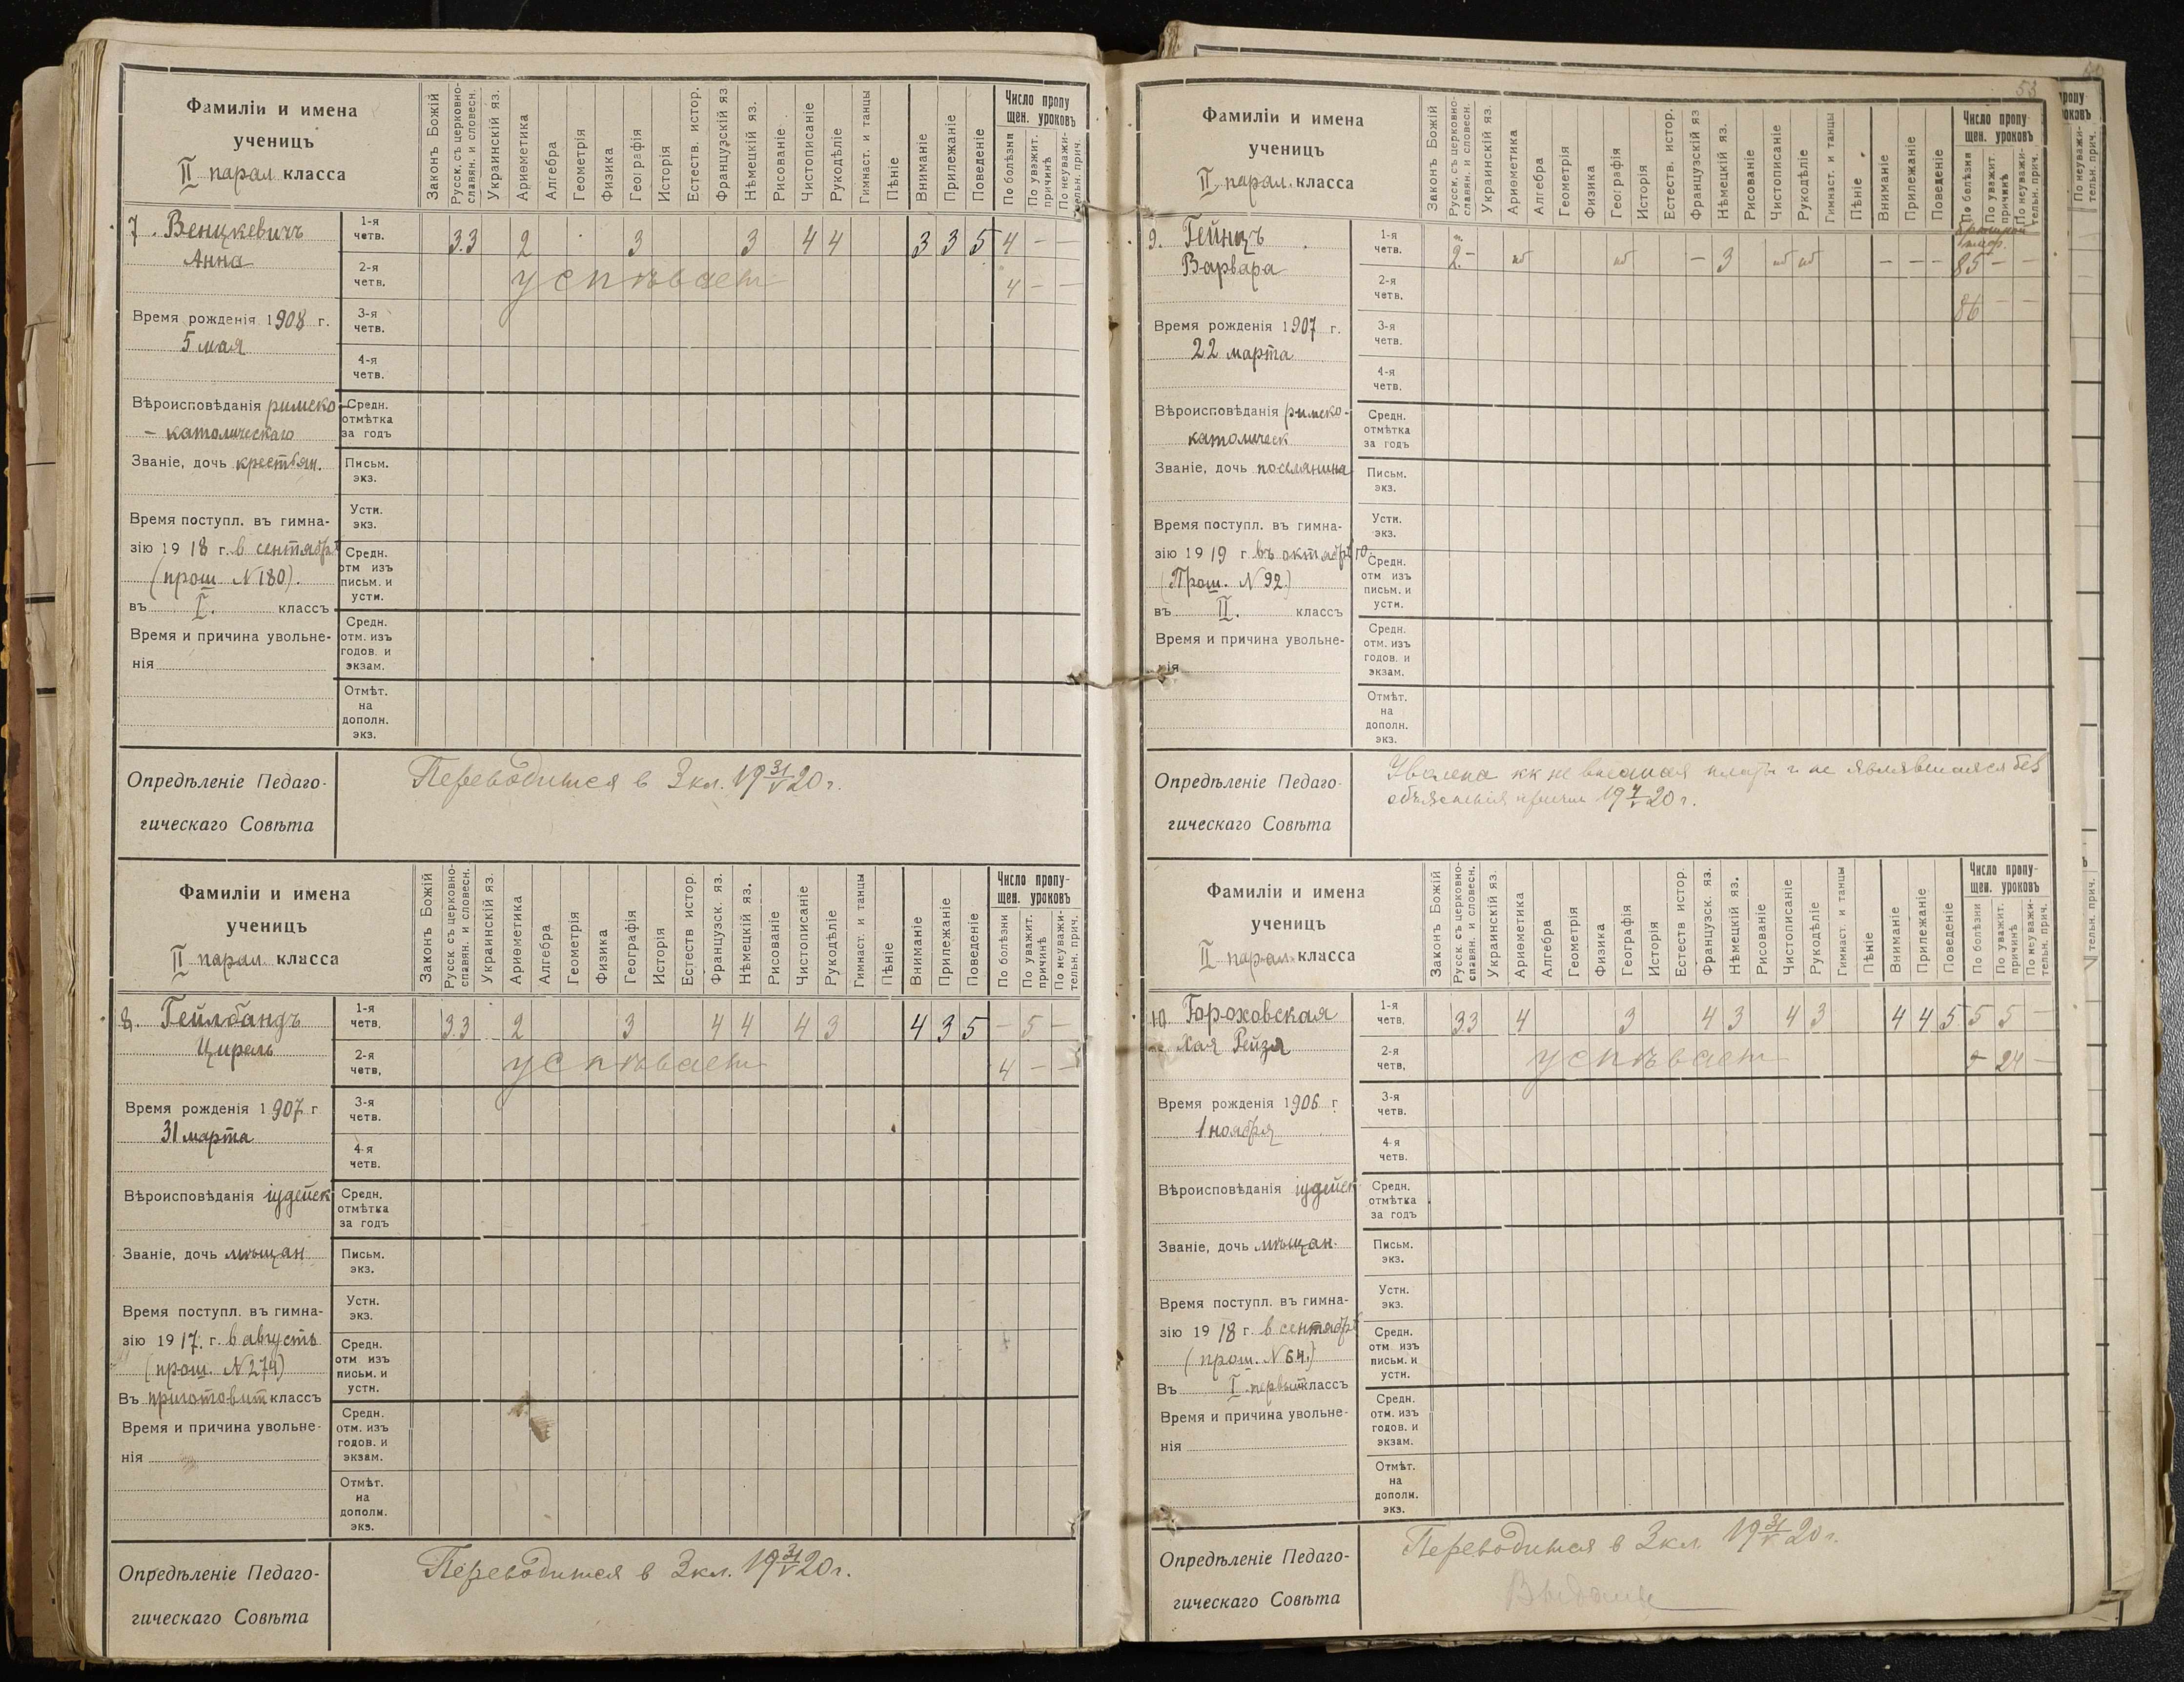 Фамиліи и имена
ученицъ
II парал. класса
Законъ Божій
Русск. съ церковно-
славян. и словесн.
Украинскій яз.
Ариѳметика
Алгебра
Геометрія
Физика
Географія
Исторія
Естеств. истор.
Французскій яз
Нѣмецкій яз.
Рисованіе
Чистописаніе
Рукодѣліе
Гимнаст. и танцы
Пѣніе
Вниманіе
Прилежаніе
Поведеніе
Число пропу
щен. уроковъ
По болѣзни
По уважит.
причинѣ
По неуважи-
тельн. прич.
7. Венцкевичъ
Анна
Время рожденія 1908 г.
5 мая
Вѣроисповѣданія римско-
- католическаго
Званіе, дочь крестьян.
Время поступл. въ гимна-
зію 1918 г. в сентябрѣ
(прош. N 180).
въ I. классъ
Время и причина увольне-
нія
1-я четв. 3 3 2 3 3 4 4 3 3 5 4 – –
2-я четв. успѣваетъ 4 – –
3-я четв.
4-я четв.
Средн. отмѣтка за годъ
Письм. экз.
Устн. экз.
Средн. отм изъ письм. и устн.
Средн. отм. изъ годов. и экзам.
Отмѣт. на дополн. экз.
Опредѣленіе Педаго-
гическаго Совѣта
Переводится в 3 кл. 19 31/V 20 г.
Фамиліи и имена
ученицъ
II парал. класса
Законъ Божій
Русск. съ церковно-
славян. и словесн.
Украинскій яз.
Ариѳметика
Алгебра
Геометрія
Физика
Географія
Исторія
Естеств истор.
Французск. яз.
Нѣмецкій яз.
Рисованіе
Чистописаніе
Рукодѣліе
Гимнаст. и танцы
Пѣніе
Вниманіе
Прилежаніе
Поведеніе
Число пропу-
щен. уроковъ
По болѣзни
По уважит.
причинѣ
По неуважи-
тельн. прич.
8. Гейлбандъ
Цирель
Время рожденія 1907 г
31 марта
Вѣроисповѣданія іудейск
Званіе, дочь мѣщан
Время поступл. въ гимна-
зію 1917. г. в августѣ
(прош. N 274)
Въ приготовит классъ
Время и причина увольне-
нія
1-я четв. 3 3 2 3 4 4 4 3 4 3 5 – 5 –
2-я четв, успѣваетъ 4 – –
3-я четв.
4-я четв.
Средн. отмѣтка за годъ
Письм. экз.
Устн. экз.
Средн. отм изъ письм. и устн.
Средн. отм. изъ годов. и экзам.
Отмѣт. на дополн. экз.
Опредѣленіе Педаго-
гическаго Совѣта
Переводится в 3 кл. 19 31/V 20 г.
53
Фамиліи и имена
ученицъ
II парал. класса
Законъ Божій
Русск. съ церковно-
славян. и словесн.
Украинскій яз.
Ариѳметика
Алгебра
Геометрія
Физика
Географія
Исторія
Естеств. истор.
Французскій яз
Нѣмецкій яз.
Рисованіе
Чистописаніе
Рукодѣліе
Гимнаст. и танцы
Пѣніе
Вниманіе
Прилежаніе
Поведеніе
Число пропу-
щен. уроковъ
По болѣзни
По уважит
причинѣ
По неуважи-
тельн. прич.
9. Гейнцъ
Варвара
Время рожденія 1907 г.
22 марта
Вѣроисповѣданія римско-
католическ
Званіе, дочь поселянина
Время поступл. въ гимна-
зію 1919 г. въ октябрѣ
(Прош. N 92)
въ II. классъ
Время и причина увольне-
нія
1-я четв. 2 – нб нб – 3 нб нб – – – 85 – –
2-я четв. 86 – –
3-я четв.
4-я четв.
Средн. отмѣтка за годъ
Письм. экз.
Устн. экз.
Средн. отм изъ письм. и устн.
Средн. отм. изъ годов. и экзам.
Отмѣт. на дополн. экз.
Опредѣленіе Педаго-
гическаго Совѣта
Уволена кк не внесшая платы и не являвшаяся без
объясненія причин 19 7/V 20 г.
Фамиліи и имена
ученицъ
II парал. класса
Законъ Божій
Русск. съ церковно-
славян. и словесн.
Украинскій яз.
Ариѳметика
Алгебра
Геометрія
Физика
Географія
Исторія
Естеств истор.
Французск. яз.
Нѣмецкій яз.
Рисованіе
Чистописаніе
Рукодѣліе
Гимнаст. и танцы
Пѣніе
Вниманіе
Прилежаніе
Поведеніе
Число пропу-
щен. уроковъ
По болѣзни
По уважит.
причинѣ
По неуважи-
тельн. прич.
10 Гороховская
Хая Рейзя
Время рожденія 1906 г
1 ноября
Вѣроисповѣданія іудейск
Званіе, дочь мѣщан.
Время поступл. въ гимна-
зію 1918 г. в сентябрѣ
(прош. N 64.)
Въ I первый классъ
Время и причина увольне-
нія
1-я четв. 3 3 4 3 4 3 4 3 4 4 5 5 5 –
2-я четв, успѣваетъ – 24 –
3-я четв.
4-я четв.
Средн. отмѣтка за годъ
Письм. экз.
Устн. экз.
Средн. отм изъ письм. и устн.
Средн. отм. изъ годов. и экзам.
Отмѣт. на дополн. экз.
Опредѣленіе Педаго-
гическаго Совѣта
Переводится в 3 кл. 19 31/V 20 г.